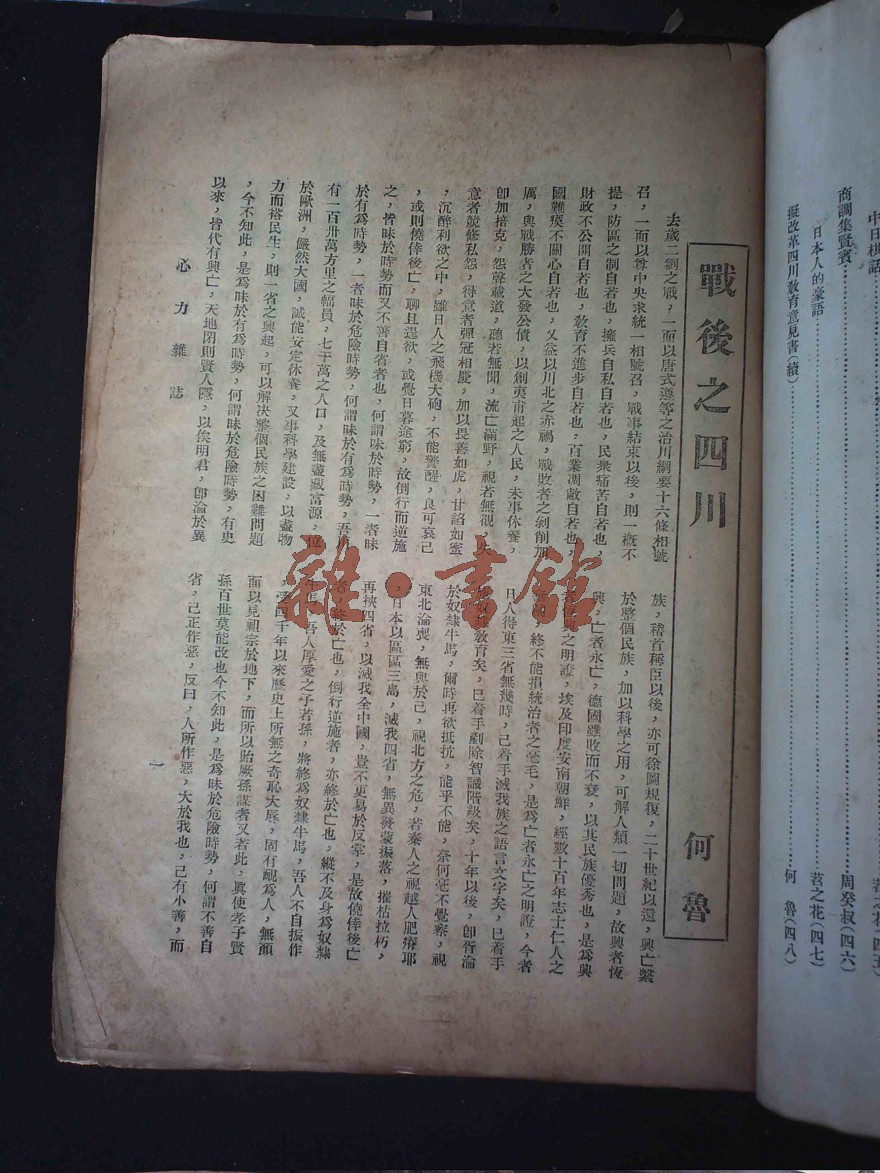 中日棋話
商調集賢賓……………周癸叔(四六)
日本人的豪語……………茗之花(四七)
擬改革四川敎育意見書(續)……………何　魯(四八)
戰後之四川
何魯
去歲二劉之戰，一面以唐式遵等之治川綱要十六條相號
召，一面以尊中央求統一相號召，戰事結束以後，則一槪不
提，防區之制自若也，擁兵自私自若也，民衆痛苦自若也，
財政不公開自若也，敎育不進步自若也，百業凋敝自若也，
國難漠不關心自若也，又益以川北之赤禍，戰敗者之剝削加
厲，與戰勝者之大發公債，以創夷甫起之人民，未事休養，
卽加掊克，怨聲載道，聽若無聞，流亡滿野，視若無覩，失
意者競修私怨，得意者彈冠相慶，加以畏善如虎，甘諂如蜜
，沉醉利欲之中，雖日人之飛機大砲，不能警醒，良可哀已
，或則僥倖後亡，聊且逞欲，或覺日暮途窮，故倒行而逆施
之，皆昧於時勢而又不善自省者也，何謂昧於時勢，一者昧
於有爲時勢，一者昧於危險時勢，何謂昧於有爲時勢，吾川
有一百卅萬方里之幅員，七千萬之人口，及無盡藏富源，位
於歐洲，儼然大國，誠能安定休養，又事科學建設，以盡物
力而裕民生，則一省之興起，可以解決整個民族之困難問題
，今不知此，是爲昧於有爲時勢，何謂昧於危險時勢，有史
以來，皆代有興亡，天地閉則賢人隱，以俟明君，卽淪於異
族，稽首稱臣以後，亦可徐圖規復，二十世紀以還，興亡繫
於整個民族，加以科學之用，可解人類一切問題，故興者恆
興，亡者永亡，德國雖敗而不衰，以其民族優秀也，是爲興
之明證，埃及印度安南朝鮮，經數十百年志士仁人之
，終不能損統治者之毫毛，是爲亡者永亡之明證，今者
日人得東三省無幾時，已着手滅我族之語言文字矣，已着手
奴敎育矣，已着手剷除智識階級矣，十年以後，卽胥淪
於奴隸牛馬，爾時再欲抵抗，能乎不能，奈何毫不覺察，視
東北淪喪，無與於己，視北方之危，若秦人之視越人肥瘠耶
，日本以區區三島，滅我四省，無異發蒙振落，摧枯拉朽，
再挾四省，以滅我全中國，豈不更易於反掌，是故僥倖後亡
者，終於亡也，倒行逆施者，亦終於亡也，縱不及身爲奴隸
牛馬，吾人厚愛之子若孫，將終爲奴隸牛馬，吾人不自振作
，受四千年以來歷史上所無之奇恥大辱，固有靦爲人，無顏
面以見祖宗於地下，而所以貽厥孫謀者又若此，眞使孝子賢
孫百世莫能改也今不知此，是爲昧於危險時勢，何謂不善自
省，己正作惡，反曰，人所作惡，大於我也，己有小善，而
心力雜誌
一
雜·書館